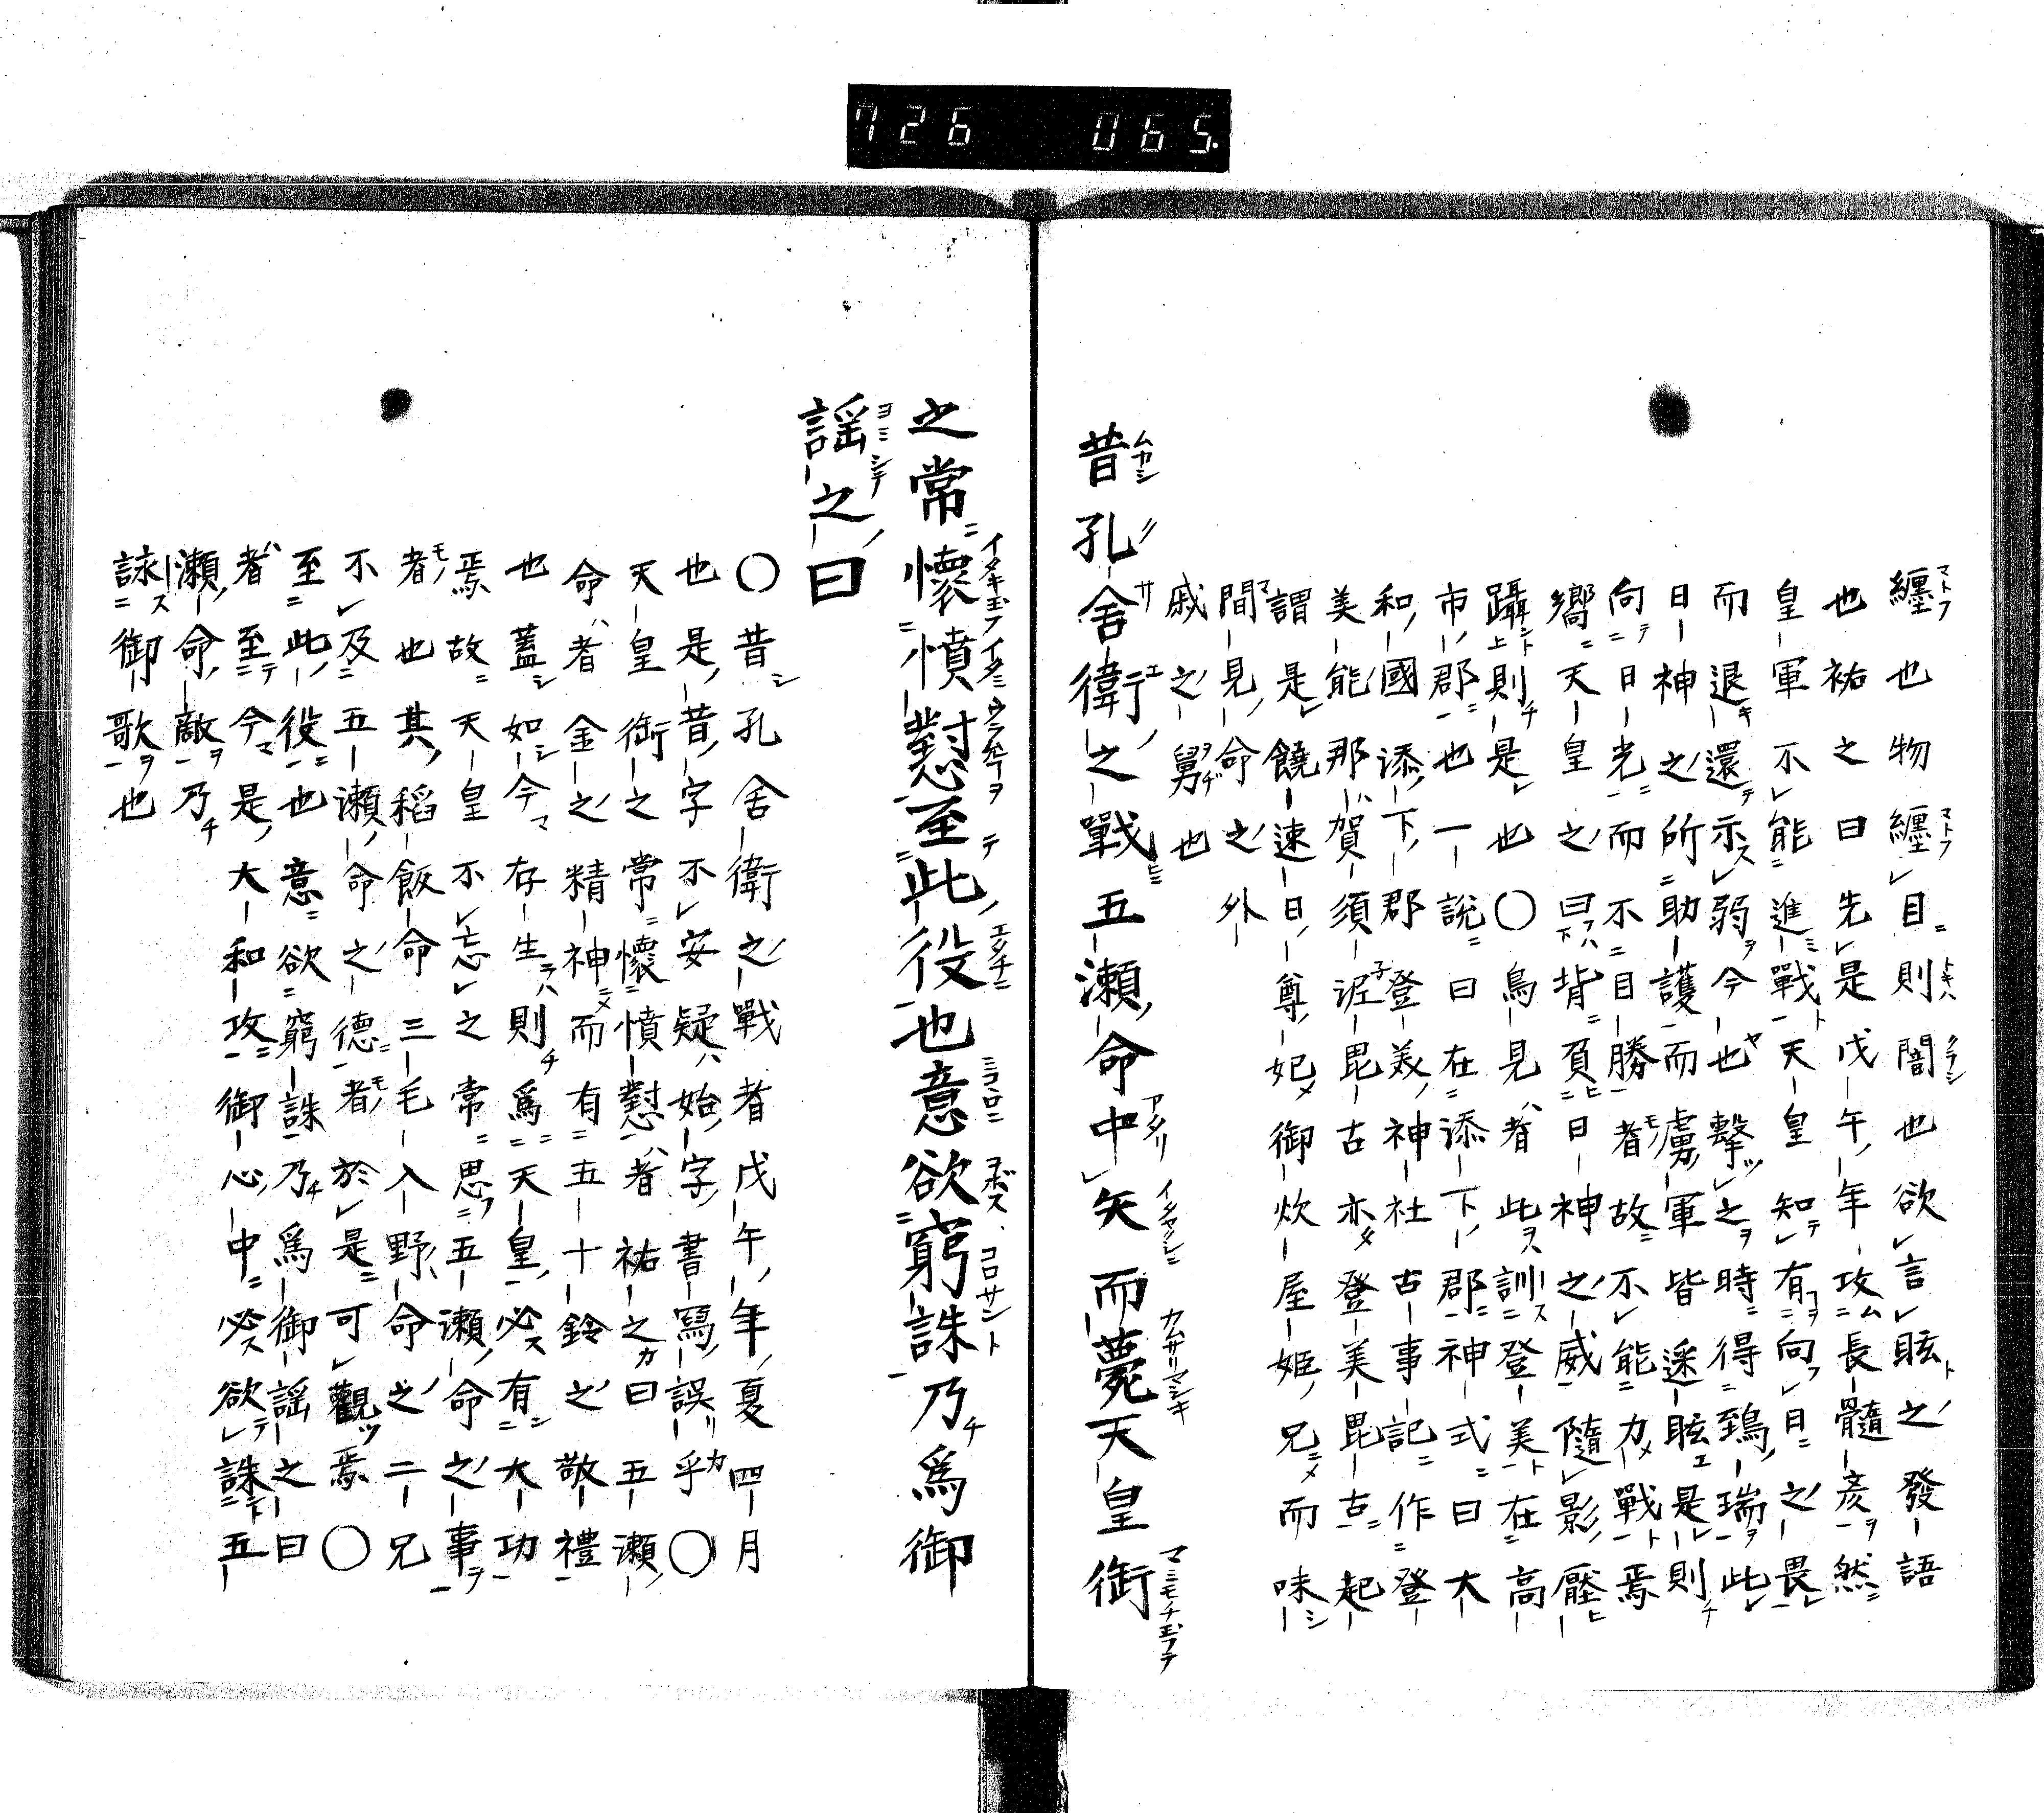 726 065.
纏也物纏目則闇也欲言眩之發語
也祐之曰先是戊午年攻長髓彥然
皇軍不能進戰天皇知有向日之畏
而退還示弱今也擊之時得至鵄瑞此
日神之所助護而虜軍皆迷眩是則
向日光而不目勝者故不能力戰焉
嚮天皇之曰背負日神之威隨影壓
躡則是也〇鳥見者此訓登美在高
市郡也一說曰在添下郡神式曰大
和國添下郡登美神社古事記作登
美能那賀須泥毘古亦登美毘古起
謂是饒速日尊妃御炊屋姬兄而味
間見命之外
戚之舅也
昔孔舍衛之戰五瀨命中矢而薨天皇銜
之常懷憤懟至此役也意欲窮誅乃爲御
謡之曰
〇昔孔舍衛之戰者戊午年夏四月
也是昔字不安疑始字書寫誤乎〇
天皇銜之常懷憤懟者祐之曰五瀨
命者金之精神而有五十鈴之敬禮
也蓋如今存生則爲天皇必有大功
焉故天皇不忘之常思五瀨命之事
者也其稻飯命三毛入野命之二兄
不及五瀨命之德者於是可觀焉〇
至此役也意欲窮誅乃爲御謡之曰
者至今是大和攻御心中必欲誅五
瀨命敵乃
詠御歌也